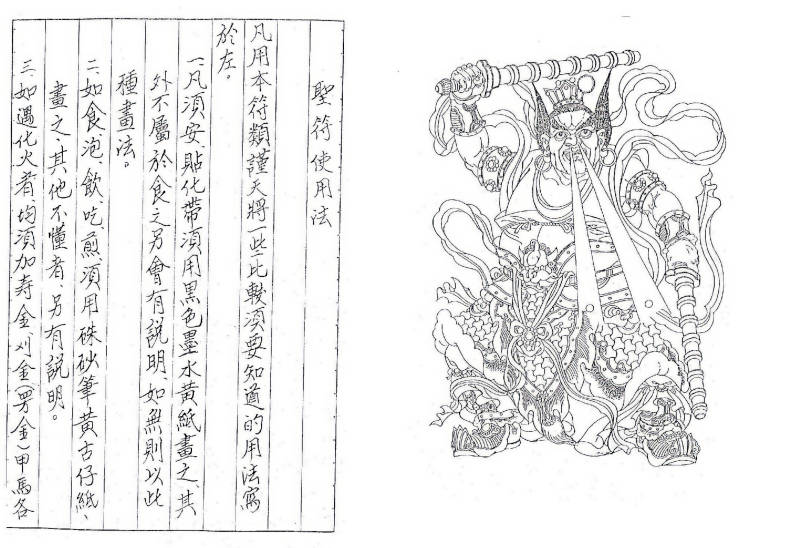 聖符使用法
凡用本符類謹天將一些比較須要知道的用法寫
於左。
一、凡須安、貼化帶須用黑色墨水黃紙畫之、其
外不屬於食之另會有說明、如無則以此
種畫法。
二、如食、泡、飲、吃、煎、須用硃砂筆黃古仔紙、
畫之、其他不懂者、另有說明。
三、如遇化火者均須加寿金、刈金(四方金)甲馬各